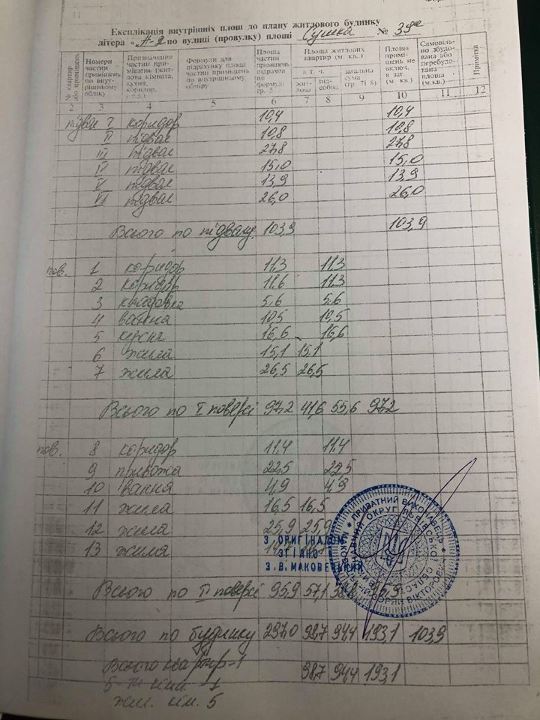 Експлікація внутрішніх площ до плану житлового будинку
літера „А-2 по вулиці (провулку) площі Сушка № 39е
№ квартир
Номери частин приміщень по внутрішньому обміру
Призначення частин приміщення
Формули для підрахунку площі частин приміщень по внутрішньому обміру
Площа частини приміщень
Площа житлових квартир (м. кв.)
в т. ч.
загальна
Самовільно
Примітка
2 3 4 5 6 7 8 9 10 11 12
підвал I коридор 10,4 10,4
II підвал 10,8 10,8
III підвал 27,8 27,8
IV підвал 15,0 15,0
V підвал 13,9 13,9
VI підвал 26,0 26,0
Всього по підвалу 103,9 103,9
пов. 1 коридор 11,3 11,3
2 коридор 11,6 11,3
3 кладовка 5,6 5,6
4 ванна 10,5 10,5
5 кухня 16,6 16,6
6 жила 15,1 15,1
7 жила 26,5 26,5
Всього по I поверсі 97,2 41,6 55,6 97,2
пов. 8 коридор 11,4 11,4
9 прихожа 22,5 22,5
10 ванна 4,9 4,9
11 жила 16,5 16,5
12 жила 25,9 25,9
13 жила
З ОРИГІНАЛОМ
ЗГІДНО
З. В. МАКОВЕЦЬКИЙ
ПРИВАТНИЙ ВИКОНАВЕЦЬ
Всього по II поверсі 95,9 57,1
Всього по будинку 297,0 98,7 94,4 193,1 103,9
Всього квартир-1 98,7 94,4 193,1
жил. кім. 5